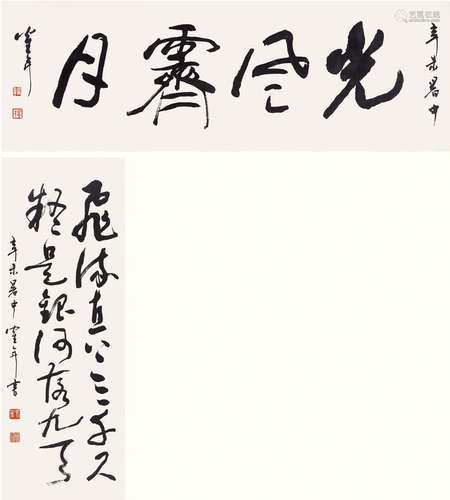 辛未暑中
光风霽月
飛流直下三千尺
疑是銀河落九天
辛未暑中
年書